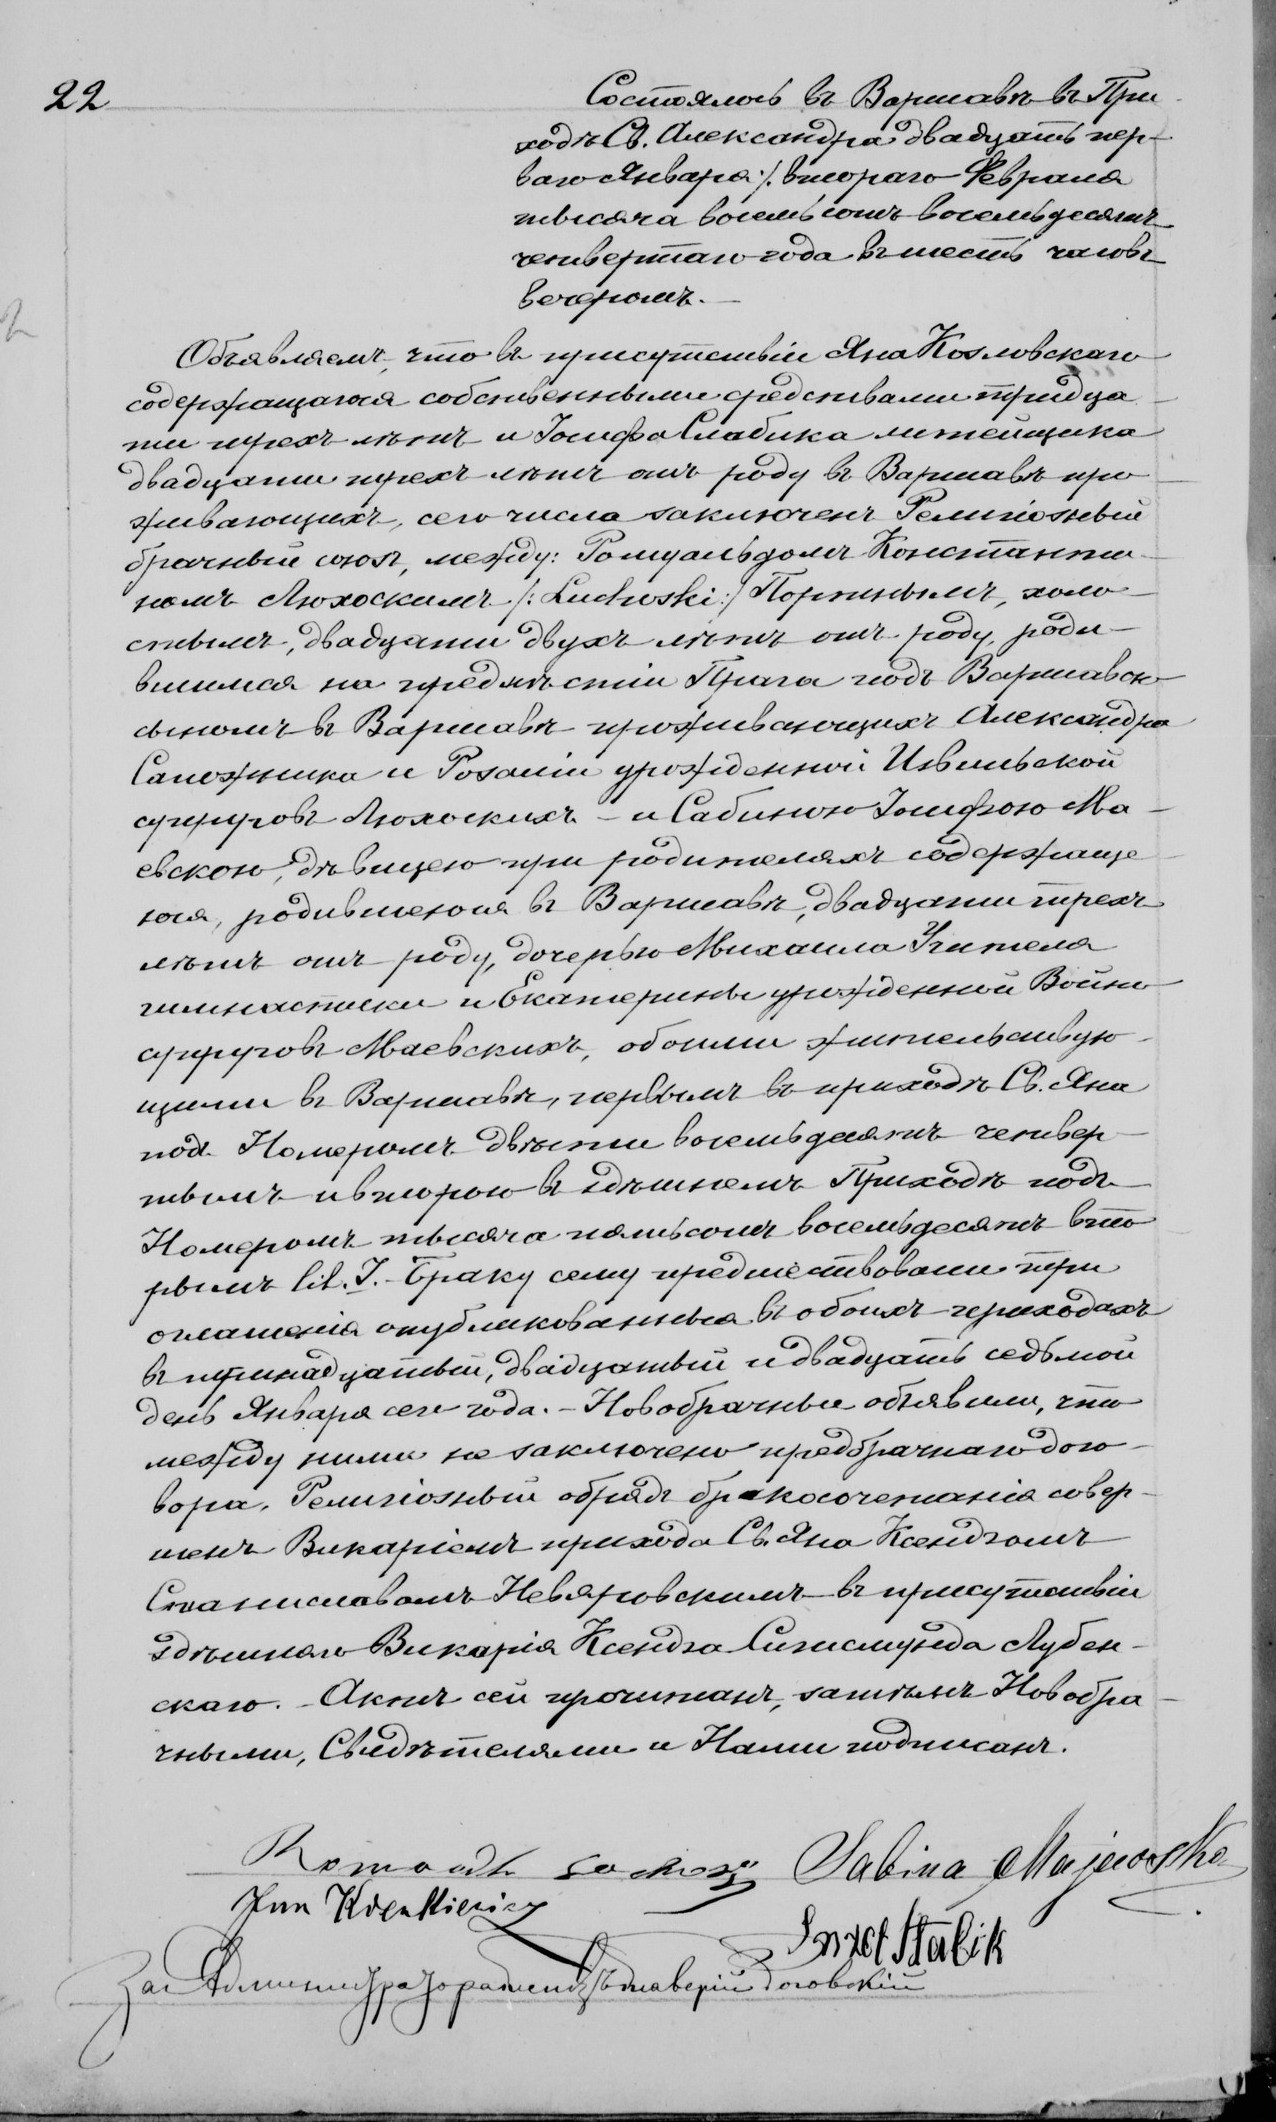 22
Состоялось въ Варшавѣ въ При
ходѣ Св. Александра двадцать пер-
ваго Января ./. втораго Февраля
тысяча восемьсотъ восемьдесятъ
четвертаго года въ шесть часовъ
вечеромъ. —
Объявляемъ, что въ присутствіи Яна Козловскаго
содержащагося собственными средствами тридца
ти трехъ лѣтъ и Іосифа Слабика литейщика
двадцати трехъ лѣтъ отъ роду въ Варшавѣ про
живающихъ, сего числа заключенъ Религіозный
брачный союзъ, между: Ромуальдомъ Константи
номъ Люхоскимъ /: Luchoski :/ Портнымъ, холо
стымъ, двадцати двухъ лѣтъ отъ роду, роди-
вшимся на предмѣстіи Прага подъ Варшавою
сыномъ въ Варшавѣ проживающихъ Александра
Сапожника и Розаліи урожденной
супруговъ Люхоскихъ – и Сабиною Іосифою Ма-
евскою, дѣвицею при родителяхъ содержаще
юся, родившеюся въ Варшавѣ, двадцати трехъ
лѣтъ отъ роду, дочерью Михаила Учителя
гимнастики и Екатерины урожденной Войно
супруговъ Маевскихъ, обоими жительствую-
щими въ Варшавѣ, первымъ въ приходѣ Св. Яна
подъ Номеромъ двѣсти восемьдесятъ четвер-
тымъ и второю въ здѣшнемъ Приходѣ подъ
Номеромъ тысяча пятьсотъ восемьдесятъ вто
рымъ lit. J. – Браку сему предшествовали три
оглашенія опубликованныя въ обоихъ приходахъ
въ тринадцатый, двадцатый и двадцать седьмой
день Января сего года. – Новобрачные объявили, что
между ними не заключено предбрачнаго дого-
вора. Религіозный обрядъ бракосочетанія совер-
шенъ Викаріемъ прихода Св. Яна Ксендзомъ
Станиславомъ Невяровскимъ въ присутствіи
здѣшняго Викарія Ксендза Сигисмунда Лубен-
скаго. – Актъ сей прочитанъ, затѣмъ Новобра-
чными, Свидѣтелями и Нами подписанъ.
Romuald Sabina Majewska
Jan
Józef Słabik
За Администратора